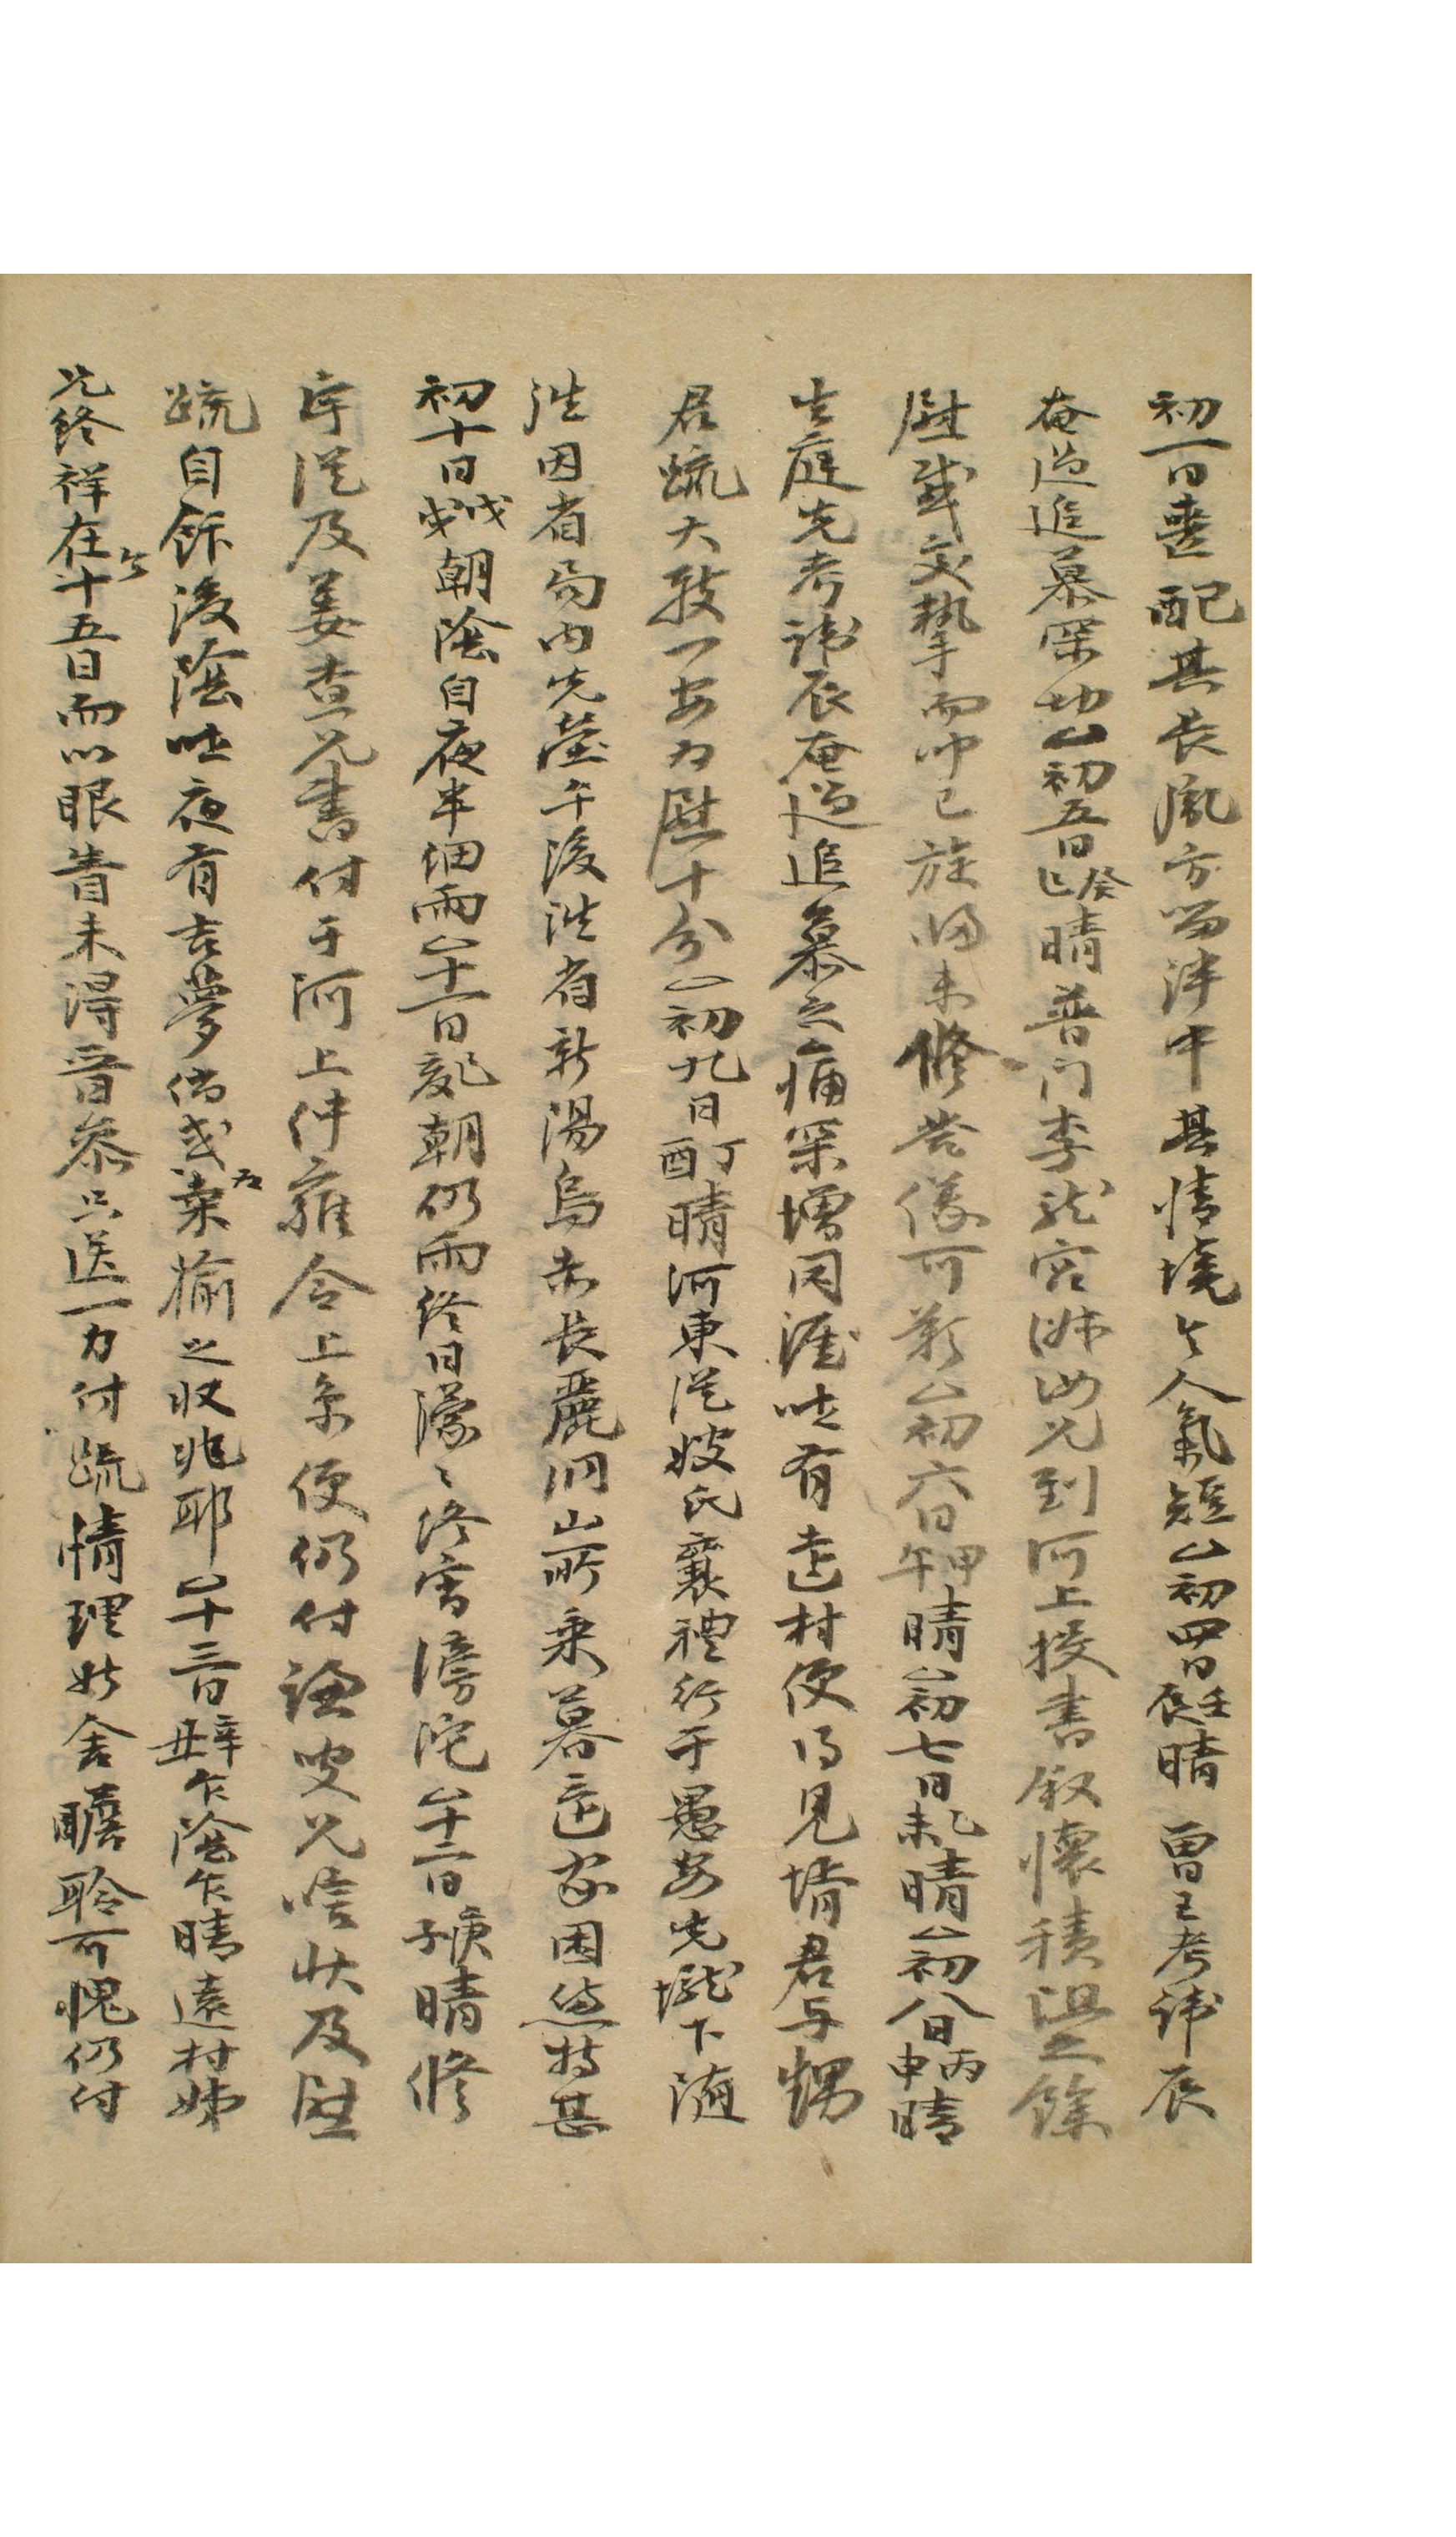 初一日喪配其長胤方留泮中其情境令人氣短△初四日壬辰晴 曾王考諱辰
奄過追慕罔切△初五日癸巳晴普門李戚宮姊兄到河上投書叙懷積阻之餘
慰感交摯而呼已旋歸未修答儀可歎△初六日甲午晴△初七日乙未晴△初八日丙申晴
生庭先考諱辰奄過追慕之痛罙增罔涯吐有走村便得見壻君与甥
君疏大致一安為慰十分△初九日丁酉晴河東從嫂氏襄禮行于愚安先壠下隨
往因省局內先塋午後往省新湯烏赤長麗洞山所乘暮還家困憊特甚
初十日戊戌朝陰自夜半細雨△十一日己亥朝仍雨終日濛〻終宵滂沱△十二日庚子晴修
庠從及姜查兄書付于河上仲雍令上京便仍付論叟兄唁狀及慰
疏自飯後陰吐夜有吉夢倘或左桑榆之收兆耶△十三日辛丑乍陰乍晴遠村姊
兄終祥在今十五日而以眼眚未得晉參只送一力付疏情理如舍瞻聆可愧仍付